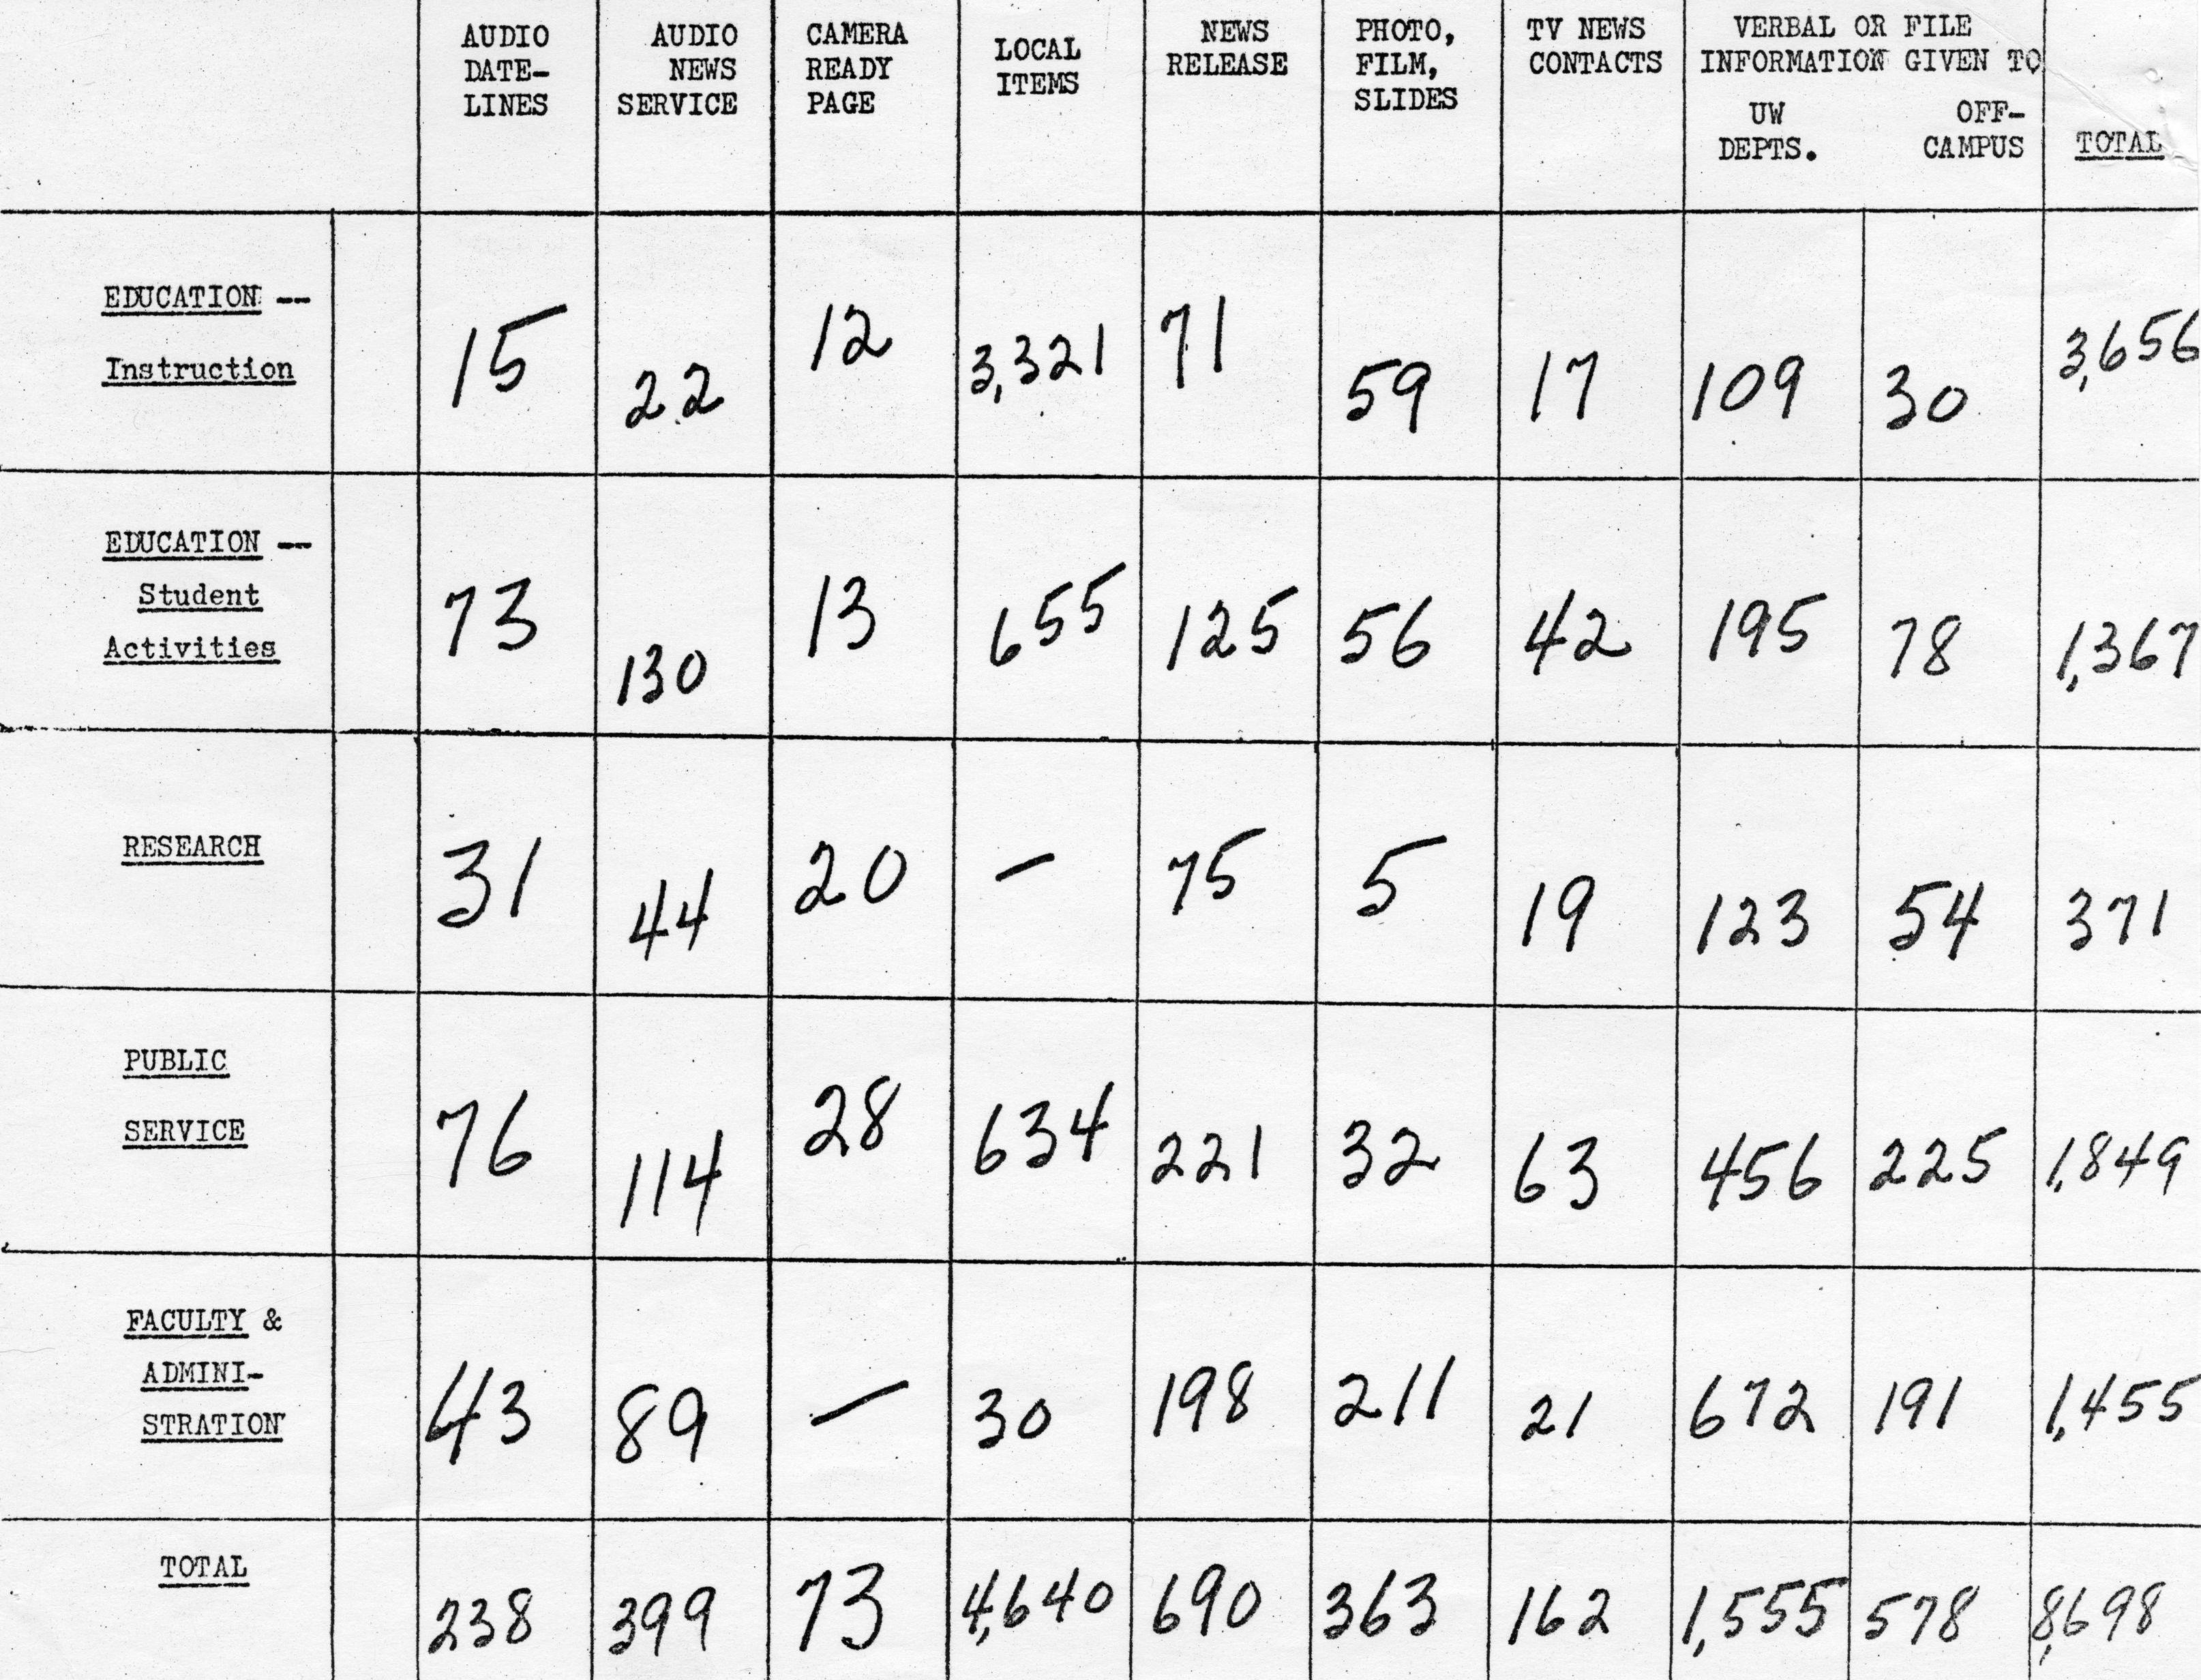 AUDIO DATE- LINES AUDIO NEWS SERVICE CAMERA READY PAGE LOCAL ITEMS NEWS RELEASE PHOTO, FILM, SLIDES TV NEWS CONTACTS VERBAL OR FILE INFORMATION GIVEN TO UW DEPTS. OFF- CAMPUS TOTAL
EDUCATION --
Instruction 15 22 12 3,321 71 59 17 109 30 3,656
EDUCATION --
Student
Activities 73 130 13 655 125 56 42 195 78 1,367
RESEARCH 31 44 20 - 75 5 19 123 54 371
PUBLIC
SERVICE 76 114 28 634 221 32 63 456 225 1,849
FACULTY &
ADMINI-
STRATION 43 89 - 30 198 211 21 672 191 1,455
TOTAL 238 399 73 4,640 690 363 162 1,555 578 8,698